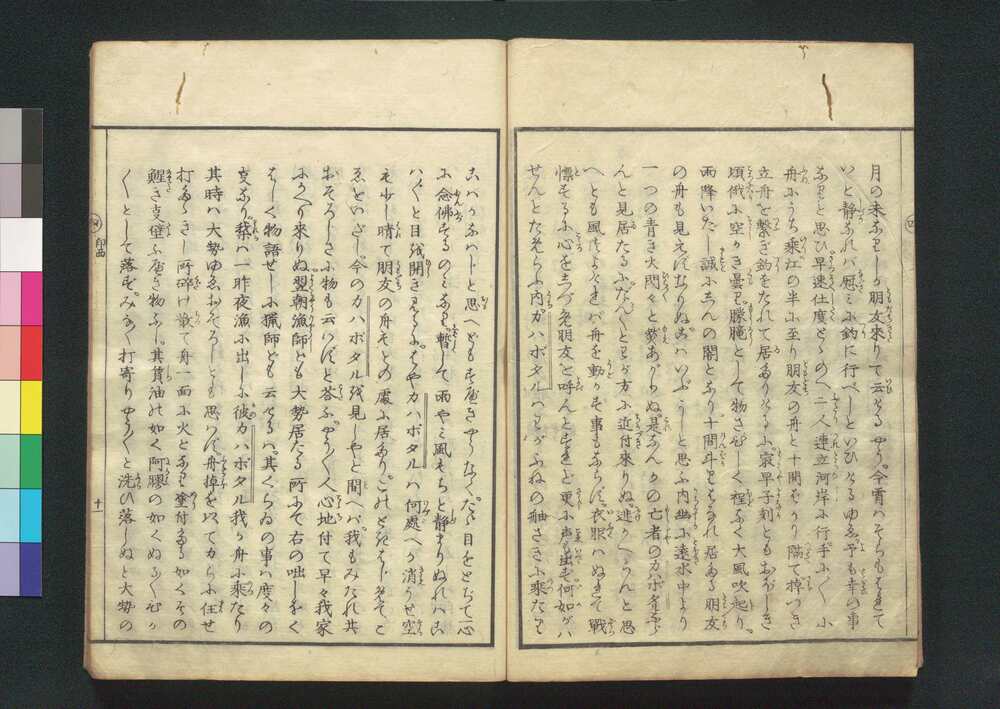 月の末なりしが朋友來りて云けるやう今宵はそらもはれて
いと静なれバ慰ミに釣に行べしといひけるゆゑ予も幸の事
なりと思ひ早速仕度とゝのへ二人連立河岸に行手ぶくに小
舟にうち乘江の半に至り朋友の舟と十間ばかり隔て掉つき
立舟を繋ぎ釣をたれて居たりけるに寂早子刻ともおぼしき
頃俄に空かき曇り朦朧として物さびしく程なく大風吹起り
雨降いだし誠にしんの闇となり十間斗りはなれ居たる朋友
の舟も見えずなりぬこハいぶかしと思ふ内幽に遠水中より
一つの青き火閃々と
んと見居たるにだん〳〵とわが方に近付來りぬ迯かへらんと思
へども風つよけれバ舟を動かす事もならず衣服ハぬれて戰
慄するに心をしづめ朋友を呼んとすれど更に声も出ず何如がハ
せんとためらふ内カハボタルハわがふねの舳さきに乘たり
こハかなハじと思へどもすべきやうなくたゞ目をとぢて心
に念佛するのミなり暫して雨やミ風もちと静まりぬれハこ
ハ〴〵と目を開き見るにはやカハボタルハ何處へか消うせ空
も少し晴て朋友の舟もとの處に居たり
ゑをいだし今のカハボタルを見しやと問へバ我もみたれ共
おそろしさに物も云はずと答ふやう〳〵人心地付て早々我家
にかへり來りぬ翌朝漁師ども大勢居たる所にて右の咄しをく
はしく物語せしに獵師ども云けるハ其くらゐの事ハ度々の
事なり某ハ一昨夜漁に出しに彼カハボタル我が舟に乘たり
其時ハ大勢ゆゑおそろしとも思はず舟掉を以てカらに任せ
打たゝきし所砕け散て舟一面に火となり塗付たる如くその
鯹き事堪ふべき物なし其質油の如く阿膠の如くぬらくらか
〳〵として落ず打寄りやう〳〵と洗ひ落しぬと大勢の
十